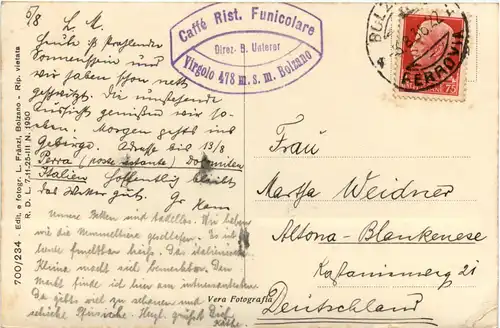 5/8 L. M.
Heute ist strahlender
Sonnenschein und
wir haben schon nett
geschwitzt. Die umstehende
Aussicht genießen wir so-
eben. Morgen gehts ins
Gebirge. Adresse bis 13/8
Perra (poste restante) Dolomiten
Italien Hoffentlich bleibt
das Wetter gut. Gr. Hans
Unsere Betten sind tadellos. Wir haben
wie die Murmeltiere geschlafen. Es ist
heute furchtbar heiss. Das italienische
Klima macht sich bemerkbar. Den
Markt finde ich hier am interessantesten.
Da gibts viel zu schauen und
schicke Pfirsiche. Herzl. grüßt Dich
Käthe.
Caffé Rist. Funicolare
Direz. B. Unterer
Virgolo 478 m. s. m. Bolzano
FERROVIA
75
Frau
Martha Weidner
Altona-Blankenese
Kastanienweg 21
Deutschland
Vera Fotografia
700/234 - Edit. e fotogr. L. Fränzl, Bolzano - Rip. vietata
R. D. L. 7-11-25-III N. 1950